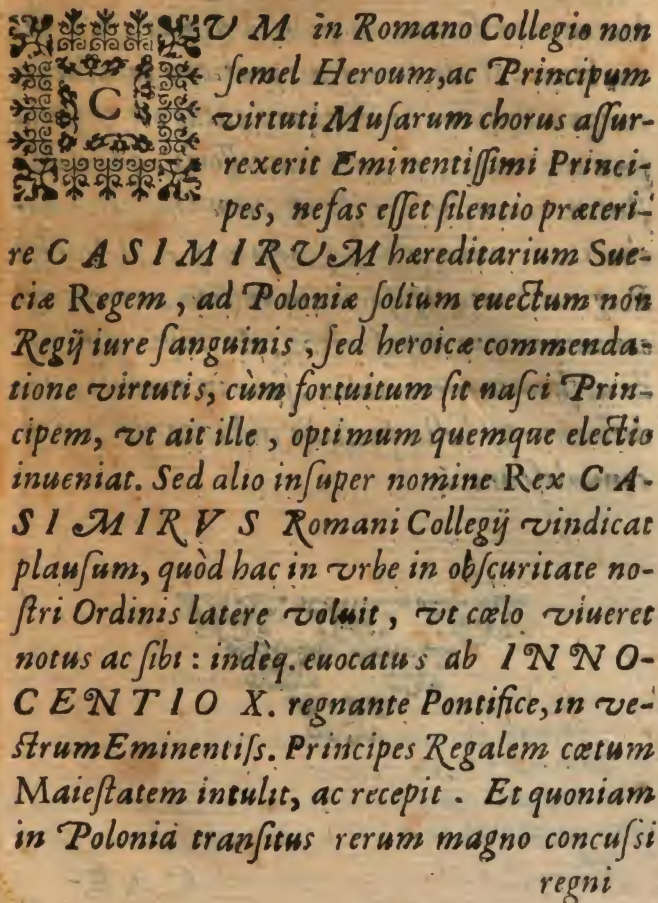 CVM in Romano Collegio non
semel Heroum, ac Principum
virtuti Musarum chorus assur-
rexerit Eminentissimi Princi-
pes, nefas esset silentio præteri-
re CASIMIRUM hæreditarium Sue-
ciæ Regem, ad Poloniæ solium euectum non
Regij iure sanguinis, sed heroicæ commenda-
tione virtutis, cùm fortuitum sit nasci Prin-
cipem, vt ait ille, optimum quemque electio
inueniat. Sed alio insuper nomine Rex CA-
SIMIRVS Romani Collegij vindicat
plausum, quòd hac in vrbe in obscuritate no-
stri Ordinis latere voluit, vt cœlo viueret
notus ac sibi: indèq. euocatus ab INNO-
CENTIO X. regnante Pontifice, in ve-
strum Eminentiss. Principes Regalem cœtum
Maiestatem intulit, ac recepit. Et quoniam
in Polonia transitus rerum magno concussi
regni